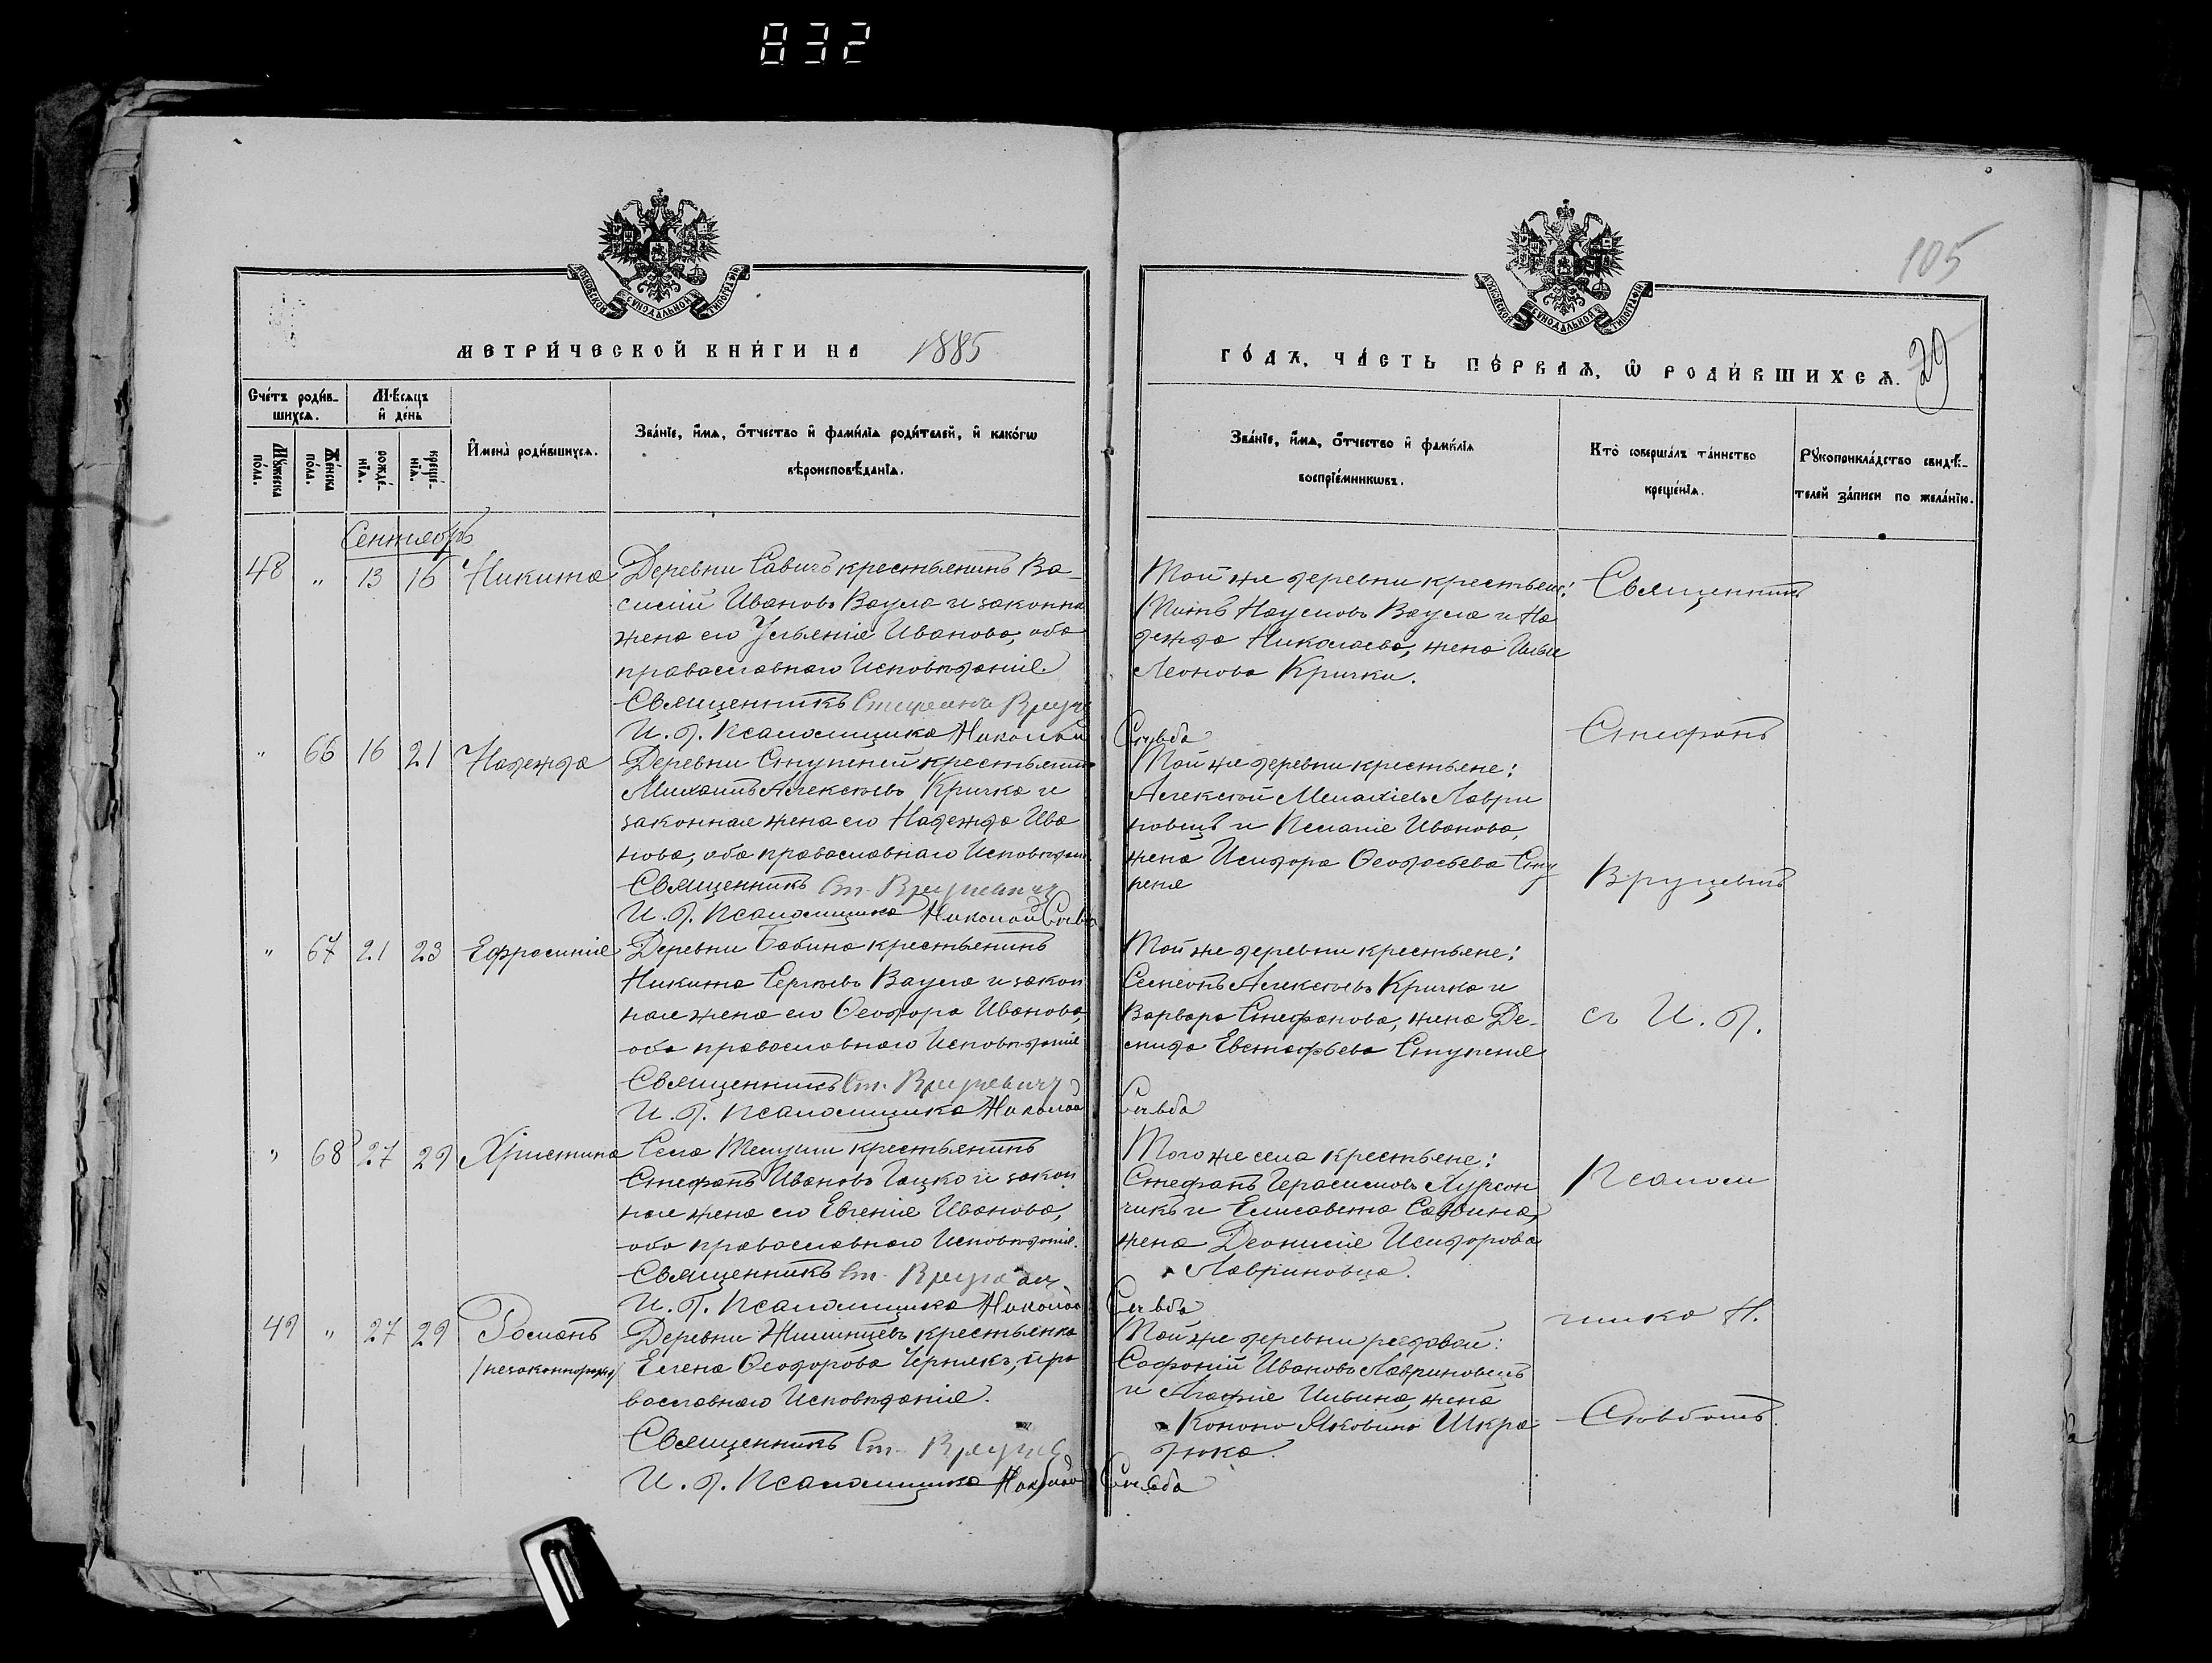 832
105
МОСКОВСКОЙ СѴНОДАЛЬНОЙ ТИПОГРАФІИ
МОСКОВСКОЙ СѴНОДАЛЬНОЙ ТИПОГРАФІИ
МЕТРИ́ЧЕСКОЙ КНИ́ГИ НА 1885
ГО́ДЪ, ЧА́СТЬ ПЕ́РВАѦ, Ѽ РОДИ́ВШИХСѦ. 29
Сче́тъ роди́в-
шихсѧ.
Мѣ́сяцъ
и҆ де́нь
Мꙋ́жеска
по́ла.
Же́нска
по́ла.
рожде́-
нїѧ.
креще́-
нїѧ.
И҆мена̀ роди́вшихсѧ.
Зва́нїе, и҆́мѧ, ѻ҆́тчество и҆ фами́лїѧ роди́телей, и҆ како́гѡ
вѣроисповѣ́данїѧ.
Зва́нїе, и҆́мѧ, ѻ҆́тчество и҆ фами́лїѧ
воспрїе́мникѡвъ.
Кто̀ соверша́лъ та́инство
креще́нїѧ.
Рꙋкоприкла́дство свидѣ́-
телей за́писи по жела́нїю.
Сентябрь
48 " 13 16 Никита
Деревни Савичъ крестьянинъ Ва-
силій Ивановъ Ваула и законна
жена его Ульянія Иванова, оба
православнаго Исповѣданія.
Священникъ Стефанъ
И. д. Псаломщика Николай
Той же деревни крестьяне:
Наумовъ Ваула и На
дежда Николаева, жена Ильи
Леонова Кричка.
Священникъ
" 66 16 21 Надежда
Деревни Ступеней крестьянинъ
Михаилъ Алексѣевъ Кричко и
законная жена его Надежда Ива
нова, оба православнаго Исповѣдан.
Священникъ Ст. Вруцевичъ
И. д. Псаломщика Николай
Той же деревни крестьяне:
Алексѣй Лаври
новецъ и Пелагія Иванова,
жена Исидора Ѳеодосьева Сту
пеня
Стефанъ
Вруцевичъ
" 67 21 23 Ефросинія
Деревни Бабина крестьянинъ
Никита Сергѣевъ Ваула и закон
ная жена его Ѳеодора Иванова,
оба православнаго Исповѣданія
Священникъ Ст. Вруцевичъ
И. д. Псаломщика Николай
Той же деревни крестьяне:
Семеонъ Алексѣевъ Кричко и
Варвара Стефанова, жена Де-
мида Евстафьева Ступеня
съ И. д.
" 68 27 29 Христина
Села Телуши крестьянинъ
Стефанъ Ивановъ Гацко и закон
ная жена его Евгенія Иванова,
оба православнаго Исповѣданія.
Священникъ Ст.
И. д. Псаломщика Николай
Того же села крестьяне:
Стефанъ Герасимовъ Хурсон
чикъ и Елисавета Саввина,
жена Деонисія Исидорова
Лавриновца.
Псалом
49 " 27 29 Романъ
/незаконнорожд/
Деревни крестьянка
Елена Ѳеодорова Чернякъ, пра
вославнаго Исповѣданія.
Священникъ Ст.
И. д. Псаломщика Николай
Той же деревни рядовой:
Софоній Ивановъ Лавриновецъ
и Агафія Ильина, жена
Конона Яковина Шкра
дюка.
щика Н.